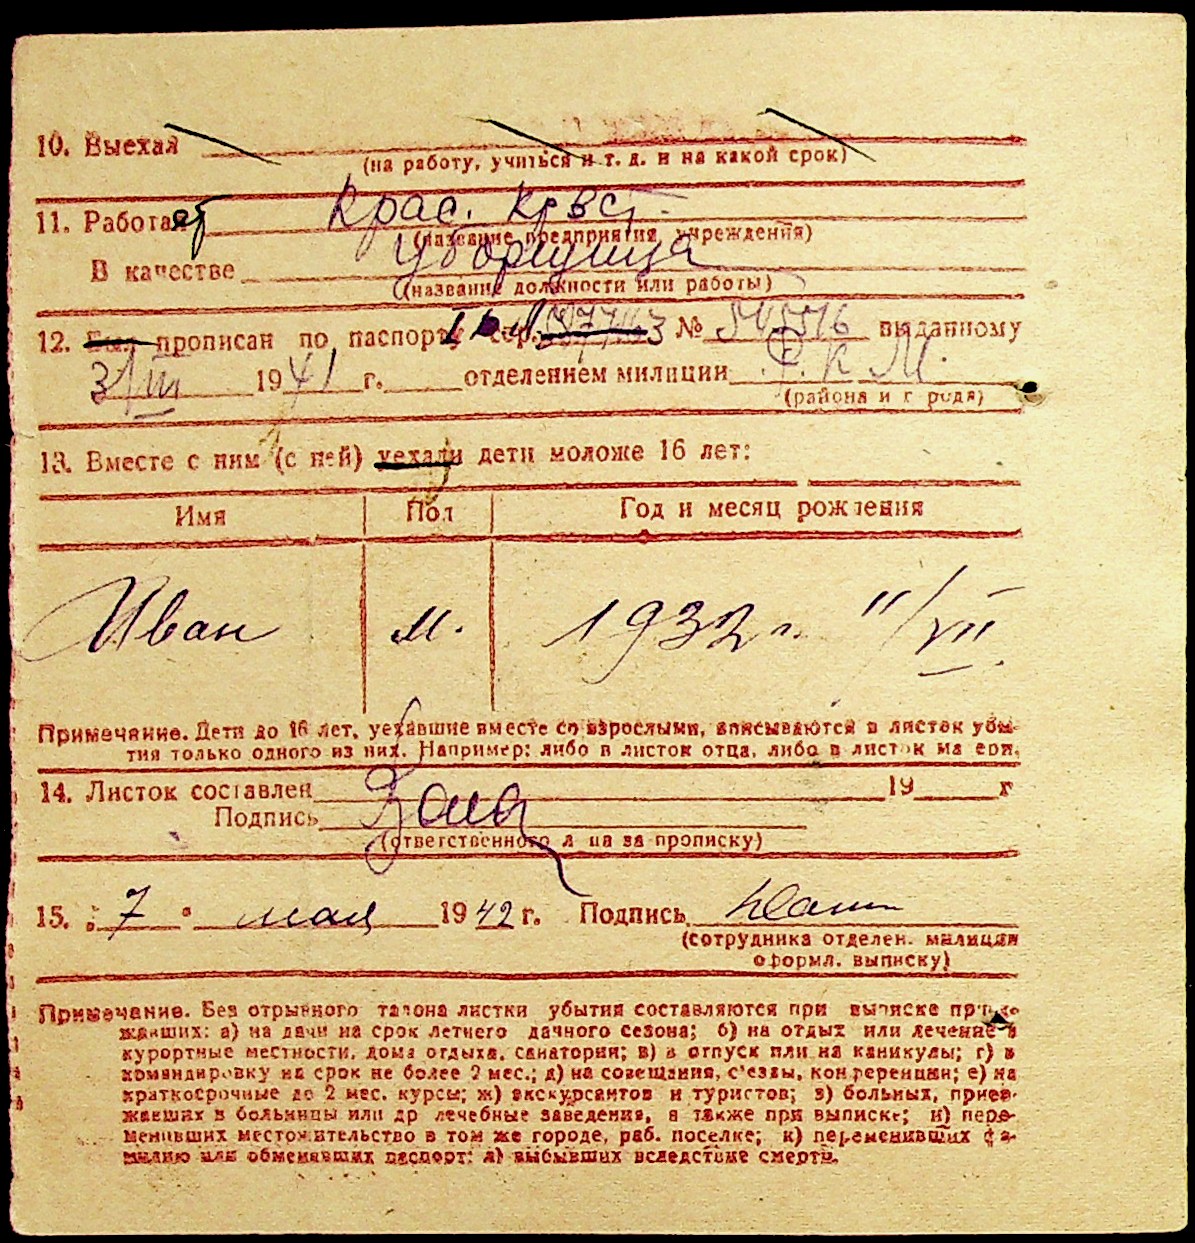 10. Выехал
(на работу, учиться и т. д. и на какой срок)
11. Работает Крас. Крвст.
(название предприятия, учреждения)
В качестве уборщица
(название должности или работы)
12. Был прописан по паспорту сер. № 545516 выданному
31/III 1941 г. отделением милиции Р. К. М.
(района и города)
13. Вместе с ним (с ней) уехали дети моложе 16 лет:
Имя Пол Год и месяц рождения
Иван м. 1932 г. 11/VII
Примечание. Дети до 16 лет, уехавшие вместе со взрослыми, вписываются в листок убы-
тия только одного из них. Например: либо в листок отца, либо в листок матери.
14. Листок составлен 19 г
Подпись
(ответственного лица за прописку)
15. "7" мая 1942 г. Подпись
(сотрудника отделен. милиции
оформл. выписку)
Примечание. Без отрывного талона листки убытия составляются при выписке приез-
жавших: а) на дачи на срок летнего дачного сезона; б) на отдых или лечение в
курортные местности, дома отдыха, санатории; в) в отпуск или на каникулы; г) в
командировку на срок не более 2 мес.; д) на совещания, с'езды, конференции; е) на
краткосрочные до 2 мес. курсы; ж) экскурсантов и туристов; з) больных, приез-
жавших в больницы или др лечебные заведения, а также при выписке; и) пере-
менивших местожительство в том же городе, раб. поселке; к) переменивших фа-
милию или обменявших паспорт; л) выбывших вследствие смерти.